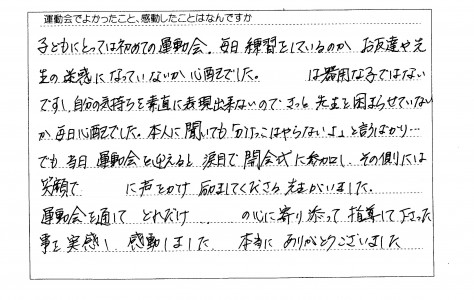 運動会でよかったこと、感動したことはなんですか
子どもにとっては初めての運動会。毎日練習をしているのか お友達や先
生の迷惑になっていないか心配でした。 は器用な子ではない
ですし、自分の気持ちを素直に表現出来ないので、きっと先生を困らせていない
か毎日心配でした。本人に聞いても「 はやらないよ」と言うばかり…
でも当日 運動会を迎えると 涙目で 開会式に参加し、その側には
笑顔で に声をかけ 励ましてくださる先生がいました。
運動会を通して どれだけ の心に寄り添って 指導して下さった
事を実感し 感動しました。 本当に ありがとうございました